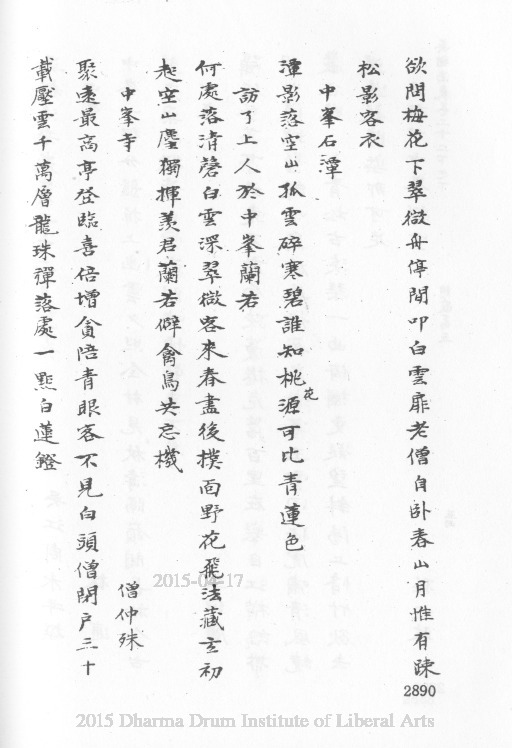 欲問梅花下翠微舟停閒叩白雲扉老僧自卧春山月惟有踈
松影客衣
中峯石潭
潭影落空山孤雲碎寒碧誰知桃源花可比青蓮色
訪了上人於中峯蘭若
何處落清磬白雲深翠微客來春盡後撲面野花飛法藏玄初
起空山麈獨揮羨君蘭若僻禽鳥共忘機
中峯寺
僧仲殊
聚遠最高亭登臨喜倍增貪陪青眼客不見白頭僧閉戸三十
載壓雲千萬層龍珠彈落處一㸃白蓮鐙
2890
2015-04-17
2015 Dharma Drum Institute of Liberal Arts